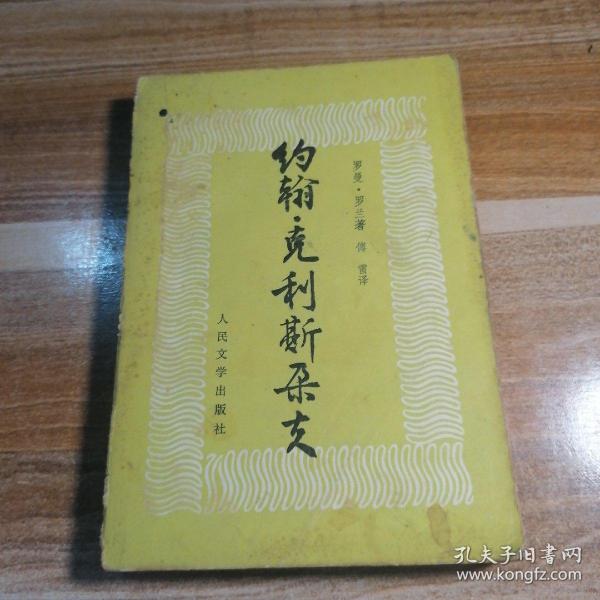 约翰·克利斯朵夫
罗曼·罗兰著 傅雷译
人民文学出版社
孔夫子旧书网
www.kongfz.com